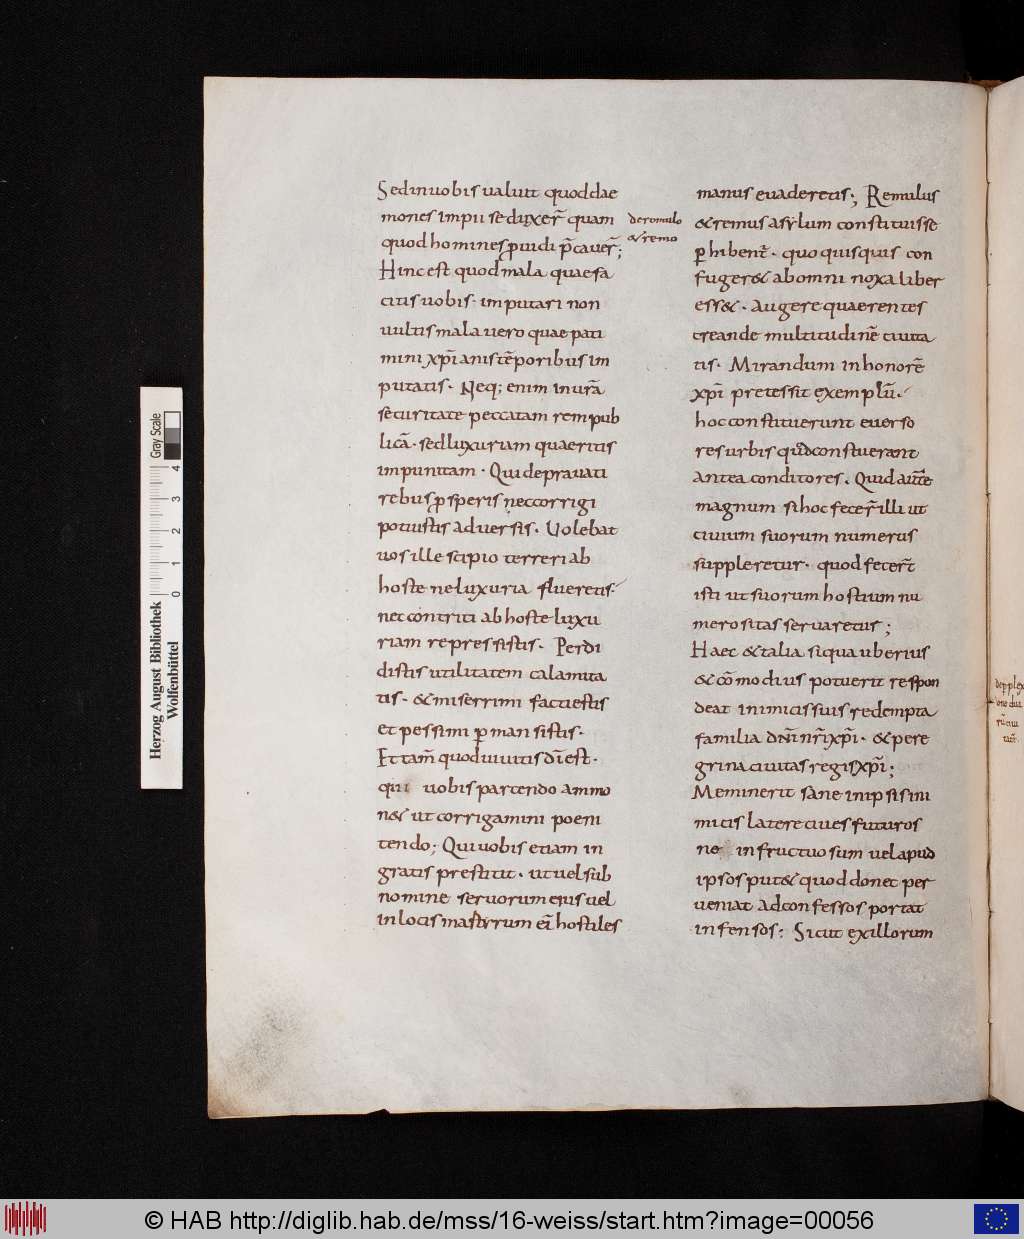 Sedinuobis ualuit quod dae
mones impii seduxer̄ quam
quod homines p̱uidi p̄cauer̄;
Hinc est quod mala quae fa
citis uobis· imputari non
uultis mala uero quae pati
mini xp̄ianis tēporibus im
putatis· Neq; enim in urā
securitate peccatam rem pub
licā· sed luxuriam quaeritis
impunitam· Qui deprauati
rebus ꝓsperis nec corrigi
potuistis aduersis· Uolebat
uos ille scipio terreri ab
hoste ne luxuria flueretis·
nec contriti ab hoste luxu
riam repressistis· Perdi
distis utilitatem calamita
tis· &miserrimi facti estis
et pessimi ꝑmansistis·
Et tam̄ quod uiuitis dī est·
qui uobis parcendo ammo
n& ut corrigamini poeni
tendo; Qui uobis etiam in
gratis prestitit· ut uel sub
nomine seruorum eius uel
in locis martyrum ei hostiles
de romulo
& remo
manus euaderetis; Remulus
&remus asylum constituisse
ꝑhibent̄· quo quisquis con
fuger& ab omni noxa liber
ess&· Augere quaerentes
creande multitudinē ciuita
tis· Mirandum in honorē
xp̄i precessit exemplū·
hoc constituerunt euerso
res urbis quod constuerant
antea conditores· Quid autē
magnum si hoc fecer̄ illi ut
ciuium suorum numerus
suppleretur· quod fecer̄t
isti ut suorum hostium nu
merositas seruaretur;
Haec &talia siqua uberius
&cōmodius potuerit respon
deat inimicis suis redempta
familia dn̄i nr̄i xp̄i· &pere
grina ciuitas regis xp̄i;
Meminerit sane in ipsis ini
micis latere ciues futuros
ne infructuosum uel apud
ipsos put& quod donec per
ueniat ad confessos portat
infensos: Sicut ex illorum
Herzog August Bibliothek
Wolfenbüttel
0 1 2 3 4
Gray Scale
© HAB http://diglib.hab.de/mss/16-weiss/start.htm?image=00056